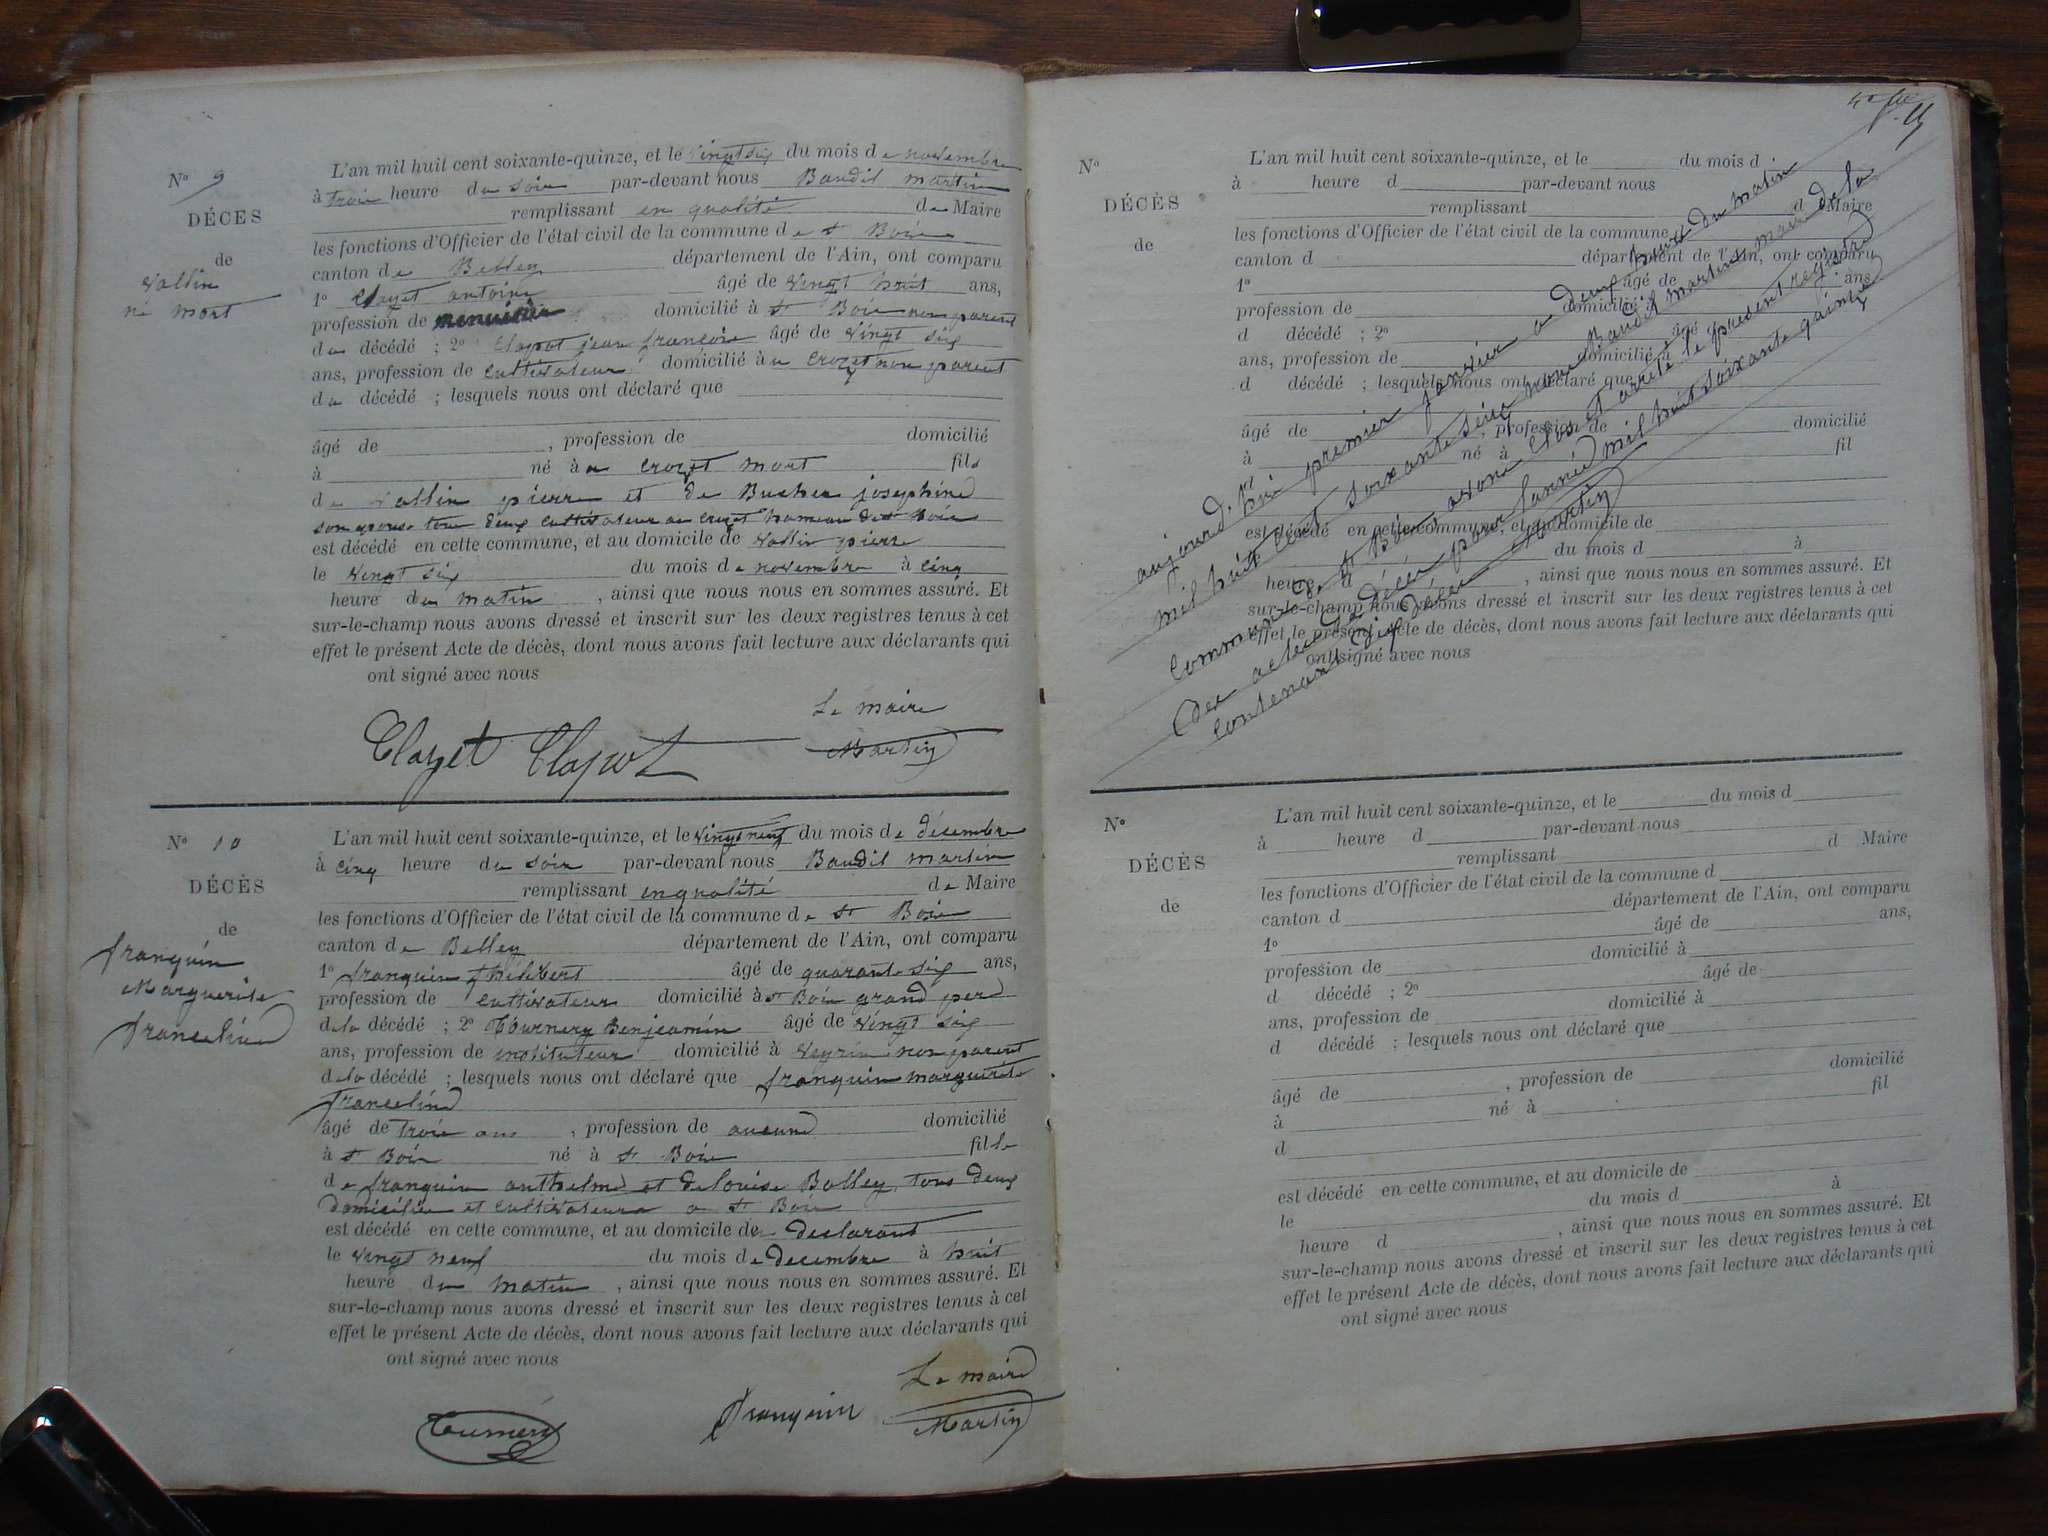 N° 9
DÉCES
de
Vallin
né mort
L'an mil huit cent soixante-quinze, et le vingt six du mois de novembre
à trois heure du soir par-devant nous Baudil martin
remplissant en qualité de Maire
les fonctions d'Officier de l'état civil de la commune de St Bois
canton de Belley département de l'Ain, ont comparu
1° Clayet antoine âgé de vingt huit ans,
profession de menuisier domicilié à St Bois non parent
du décédé ; 2° Clapot jean françois âgé de vingt six
ans, profession de cultivateur domicilié au crozet non parent
du décédé ; lesquels nous ont déclaré que
âgé de , profession de domicilié
à né à au crozet mort fils
de vallin pierre et de Buches joséphine
son epouse tous deux cultivateur au crozet hameau de St Bois
est décédé en cette commune, et au domicile de vallin pierre
le vingt six du mois de novembre à cinq
heure du matin , ainsi que nous nous en sommes assuré. Et
sur-le-champ nous avons dressé et inscrit sur les deux registres tenus à cet
effet le présent Acte de décès, dont nous avons fait lecture aux déclarants qui
ont signé avec nous
Le maire
Clayet Clapot Martin
N° 10
DÉCÈS
de
franquin
Marguerite
francéline
L'an mil huit cent soixante-quinze, et le vingt neuf du mois de décembre
à cinq heure du soir par-devant nous Baudil martin
remplissant en qualité de Maire
les fonctions d'Officier de l'état civil de la commune de St Bois
canton de Belley département de l'Ain, ont comparu
1° franquin philibert âgé de quarante six ans,
profession de cultivateur domicilié à St Bois grand pere
de la décédé ; 2° Tournery Benjeamin âgé de vingt six
ans, profession de instituteur domicilié à veyrin non parent
de la décédé ; lesquels nous ont déclaré que franquin marguerite
francéline
âgé de trois ans , profession de aucune domicilié
à St Bois né à St Bois fille
de franquin anthelme et de louise Bolley, tous deux
domiciliés et cultivateurs a St Bois
est décédé en cette commune, et au domicile de declarant
le vingt neuf du mois de decembre à huit
heure du matin , ainsi que nous nous en sommes assuré. Et
sur-le-champ nous avons dressé et inscrit sur les deux registres tenus à cet
effet le présent Acte de décès, dont nous avons fait lecture aux déclarants qui
ont signé avec nous
Le maire
franquin Martin
N°
DÉCÈS
de
L'an mil huit cent soixante-quinze, et le du mois d
à heure d par-devant nous
remplissant d Maire
les fonctions d'Officier de l'état civil de la commune
canton d département de l'Ain, ont comparu
1° âgé de ans,
profession de domicilié à
d décédé ; 2° âgé de
ans, profession de domicilié à
d décédé ; lesquels nous ont déclaré que
âgé de , profession de domicilié
à né à fil
est décédé en cette commune, et au domicile de
le du mois d à
heure d , ainsi que nous nous en sommes assuré. Et
sur-le-champ nous avons dressé et inscrit sur les deux registres tenus à cet
effet le présent Acte de décès, dont nous avons fait lecture aux déclarants qui
ont signé avec nous
aujourd'hui premier janvier a deux heures du matin
mil huit cent soixante seize nous Baudil martin maire de la
commune de St Bois avons clos et arrété le present registre
des actes de décès pour l'année mil huit soixante quinze
contenant dix décès Martin
N°
DÉCÈS
de
L'an mil huit cent soixante-quinze, et le du mois d
à heure d par-devant nous
remplissant d Maire
les fonctions d'Officier de l'état civil de la commune d
canton d département de l'Ain, ont comparu
1° âgé de ans,
profession de domicilié à
d décédé ; 2° âgé de
ans, profession de domicilié à
d décédé ; lesquels nous ont déclaré que
âgé de , profession de domicilié
à né à fil
d
est décédé en cette commune, et au domicile de
le du mois d à
heure d , ainsi que nous nous en sommes assuré. Et
sur-le-champ nous avons dressé et inscrit sur les deux registres tenus à cet
effet le présent Acte de décès, dont nous avons fait lecture aux déclarants qui
ont signé avec nous